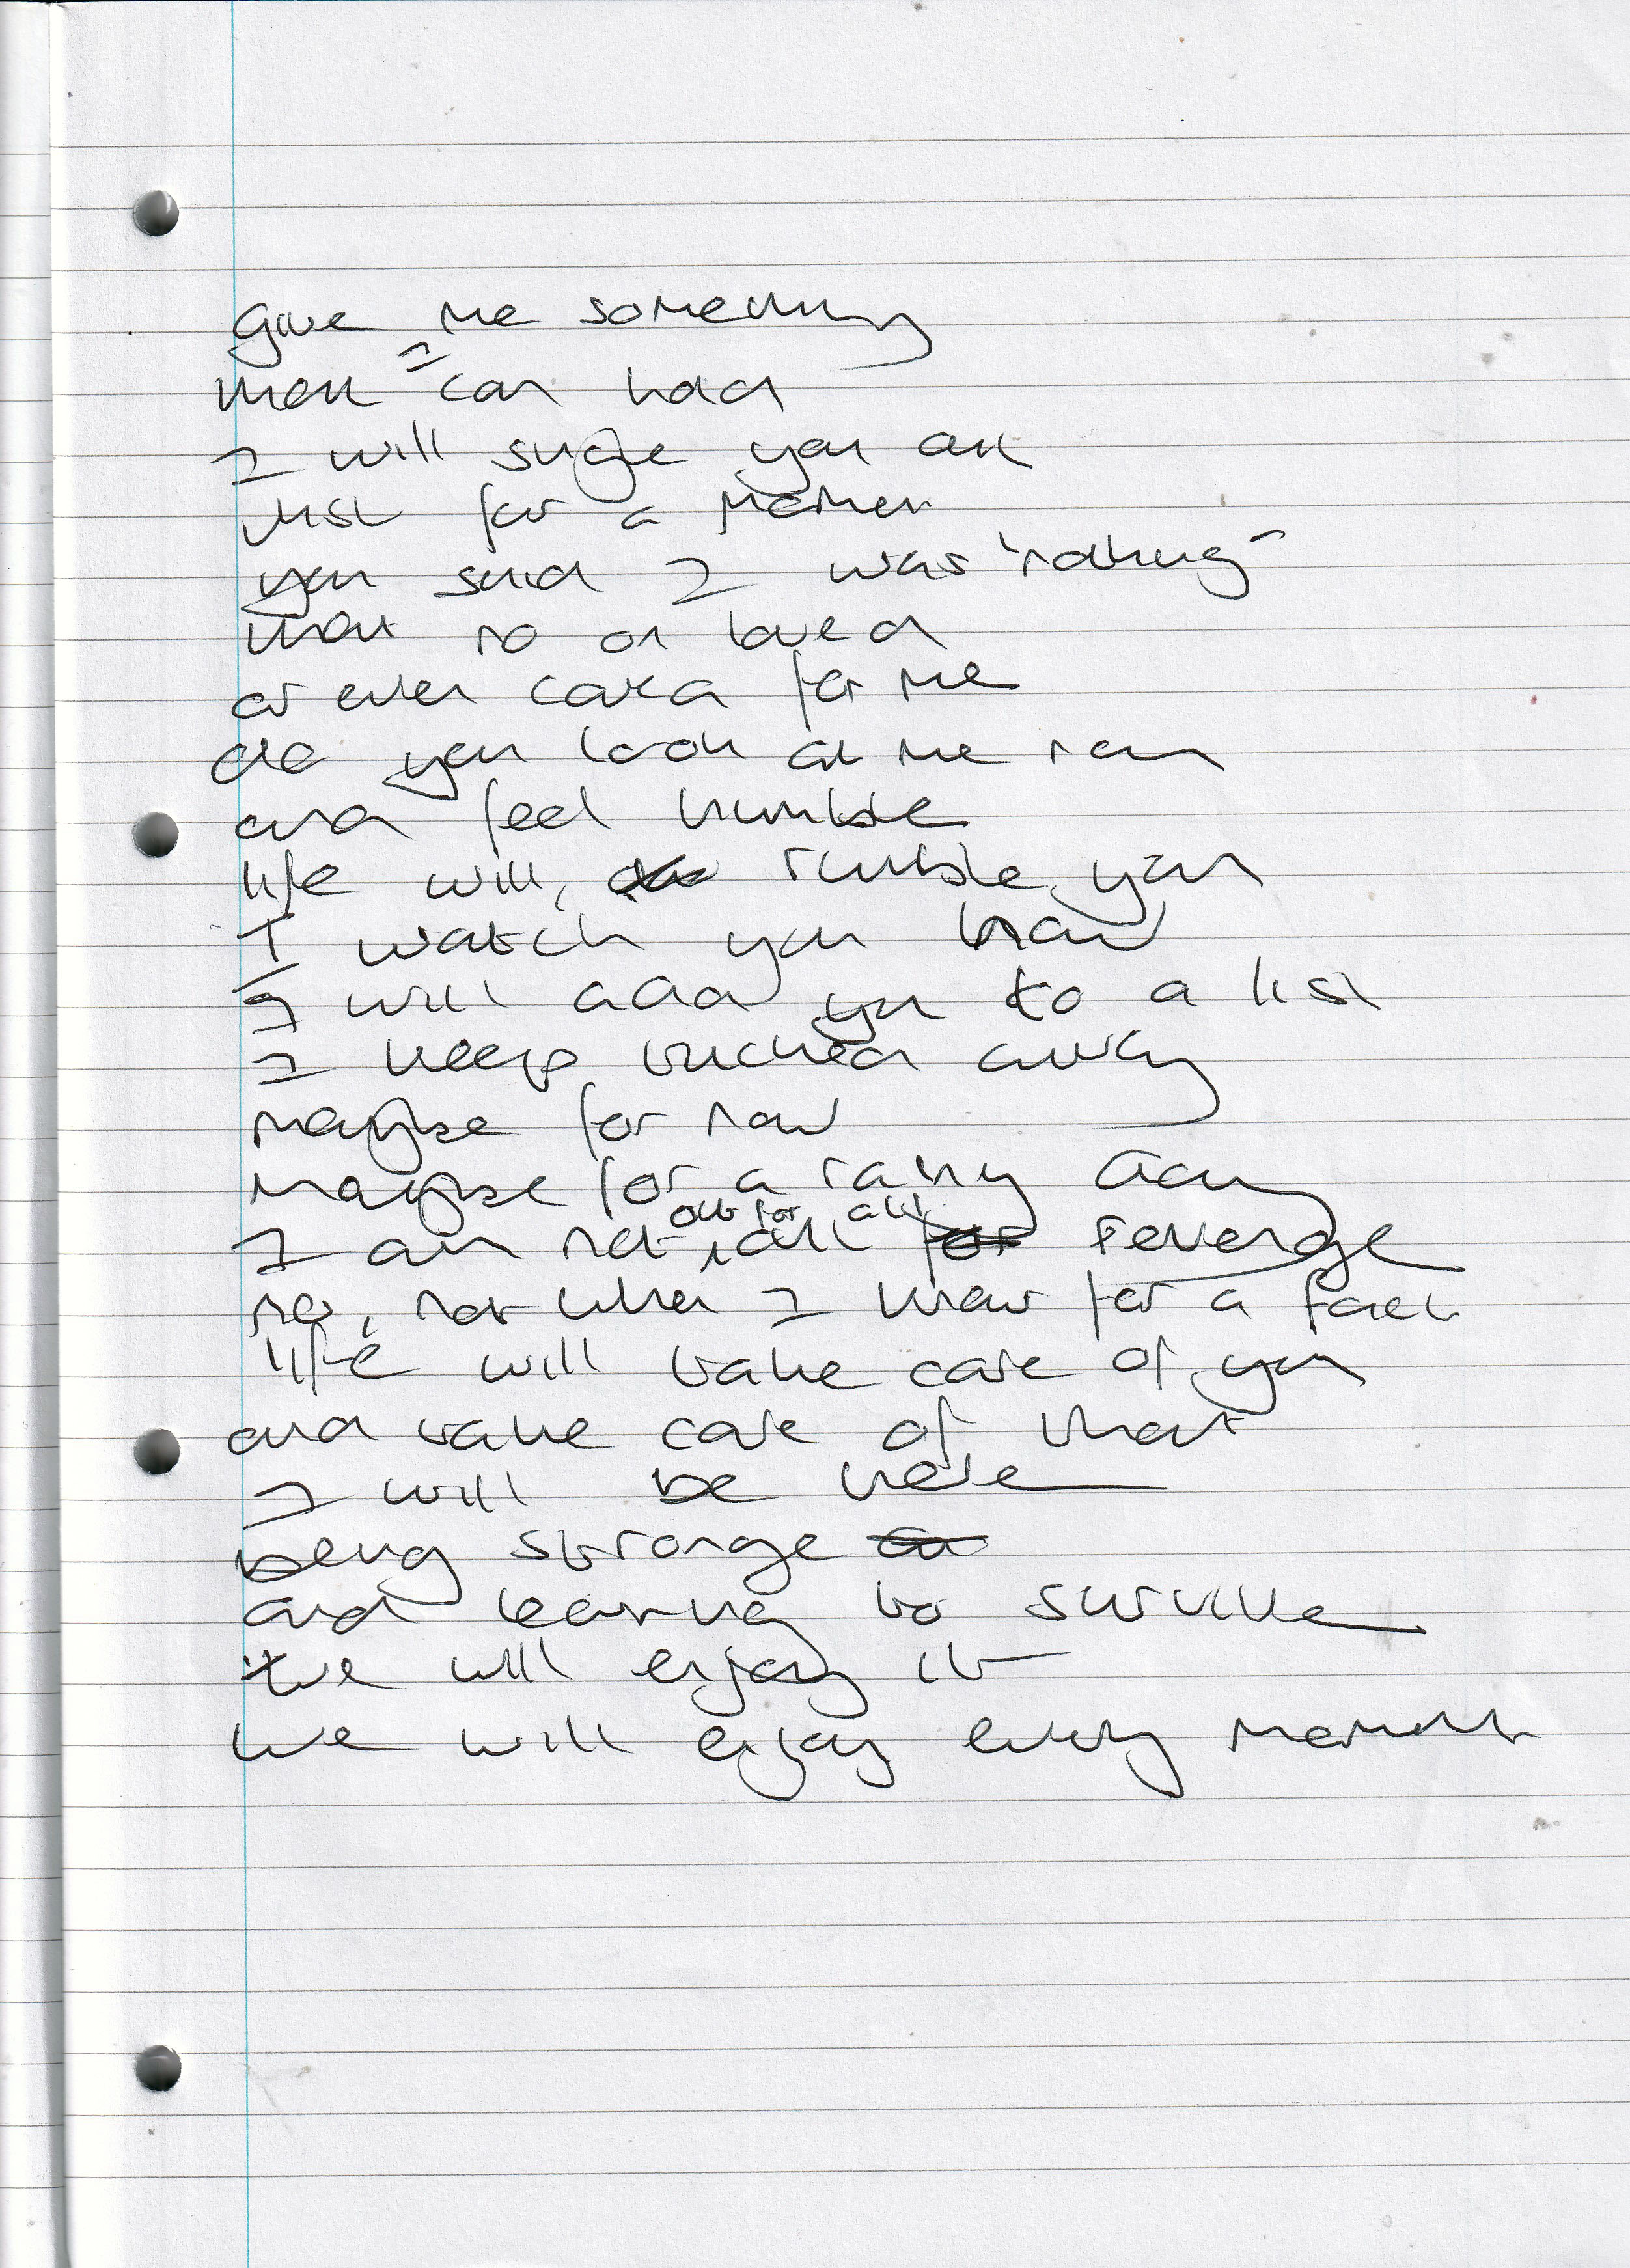 give me something
that I can hold
I will suffe you out
just for a moment
you said I was 'nothing'
that no on loved
or even card for me
do you look at me now
and feel humble
life will, rumble you
I watch you know
I will add you to a list
I keep tucked away
maybe for now
maybe for a rainy day
I am not out for all revenge
no, not when I know for a fact
life will take care of you
and take care of that
I will be here
being strange
and learning to survive
we will enjoy it
we will enjoy every moment